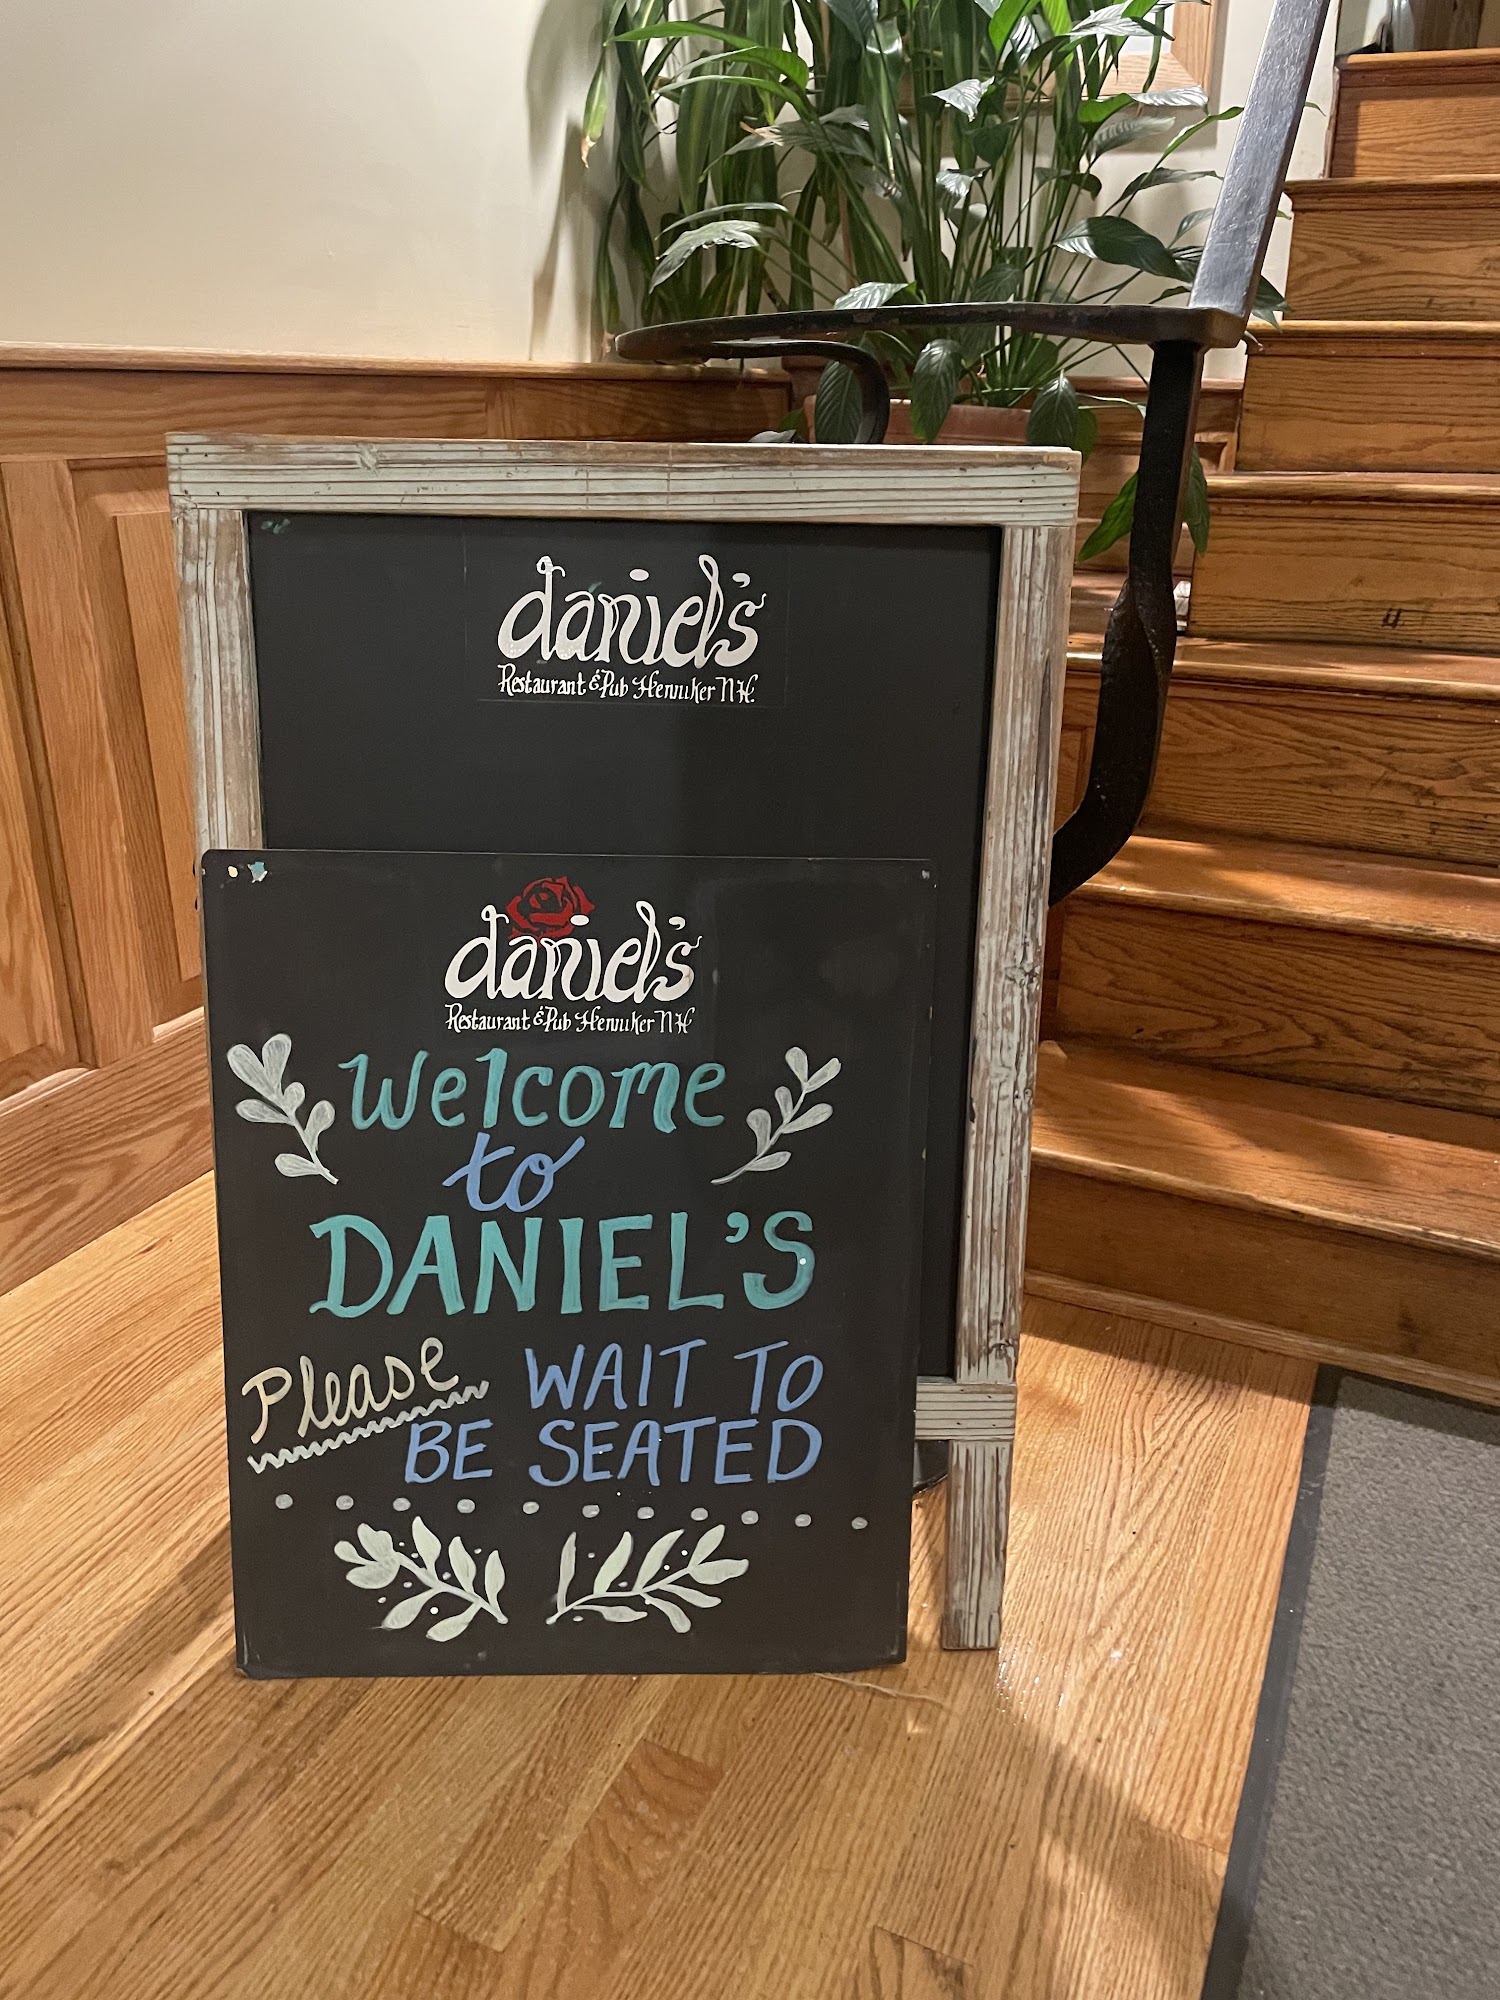 daniel's
Restaurant & Pub Henniker NH.
daniel's
Restaurant & Pub Henniker NH
Welcome
to
DANIEL'S
Please WAIT TO
BE SEATED